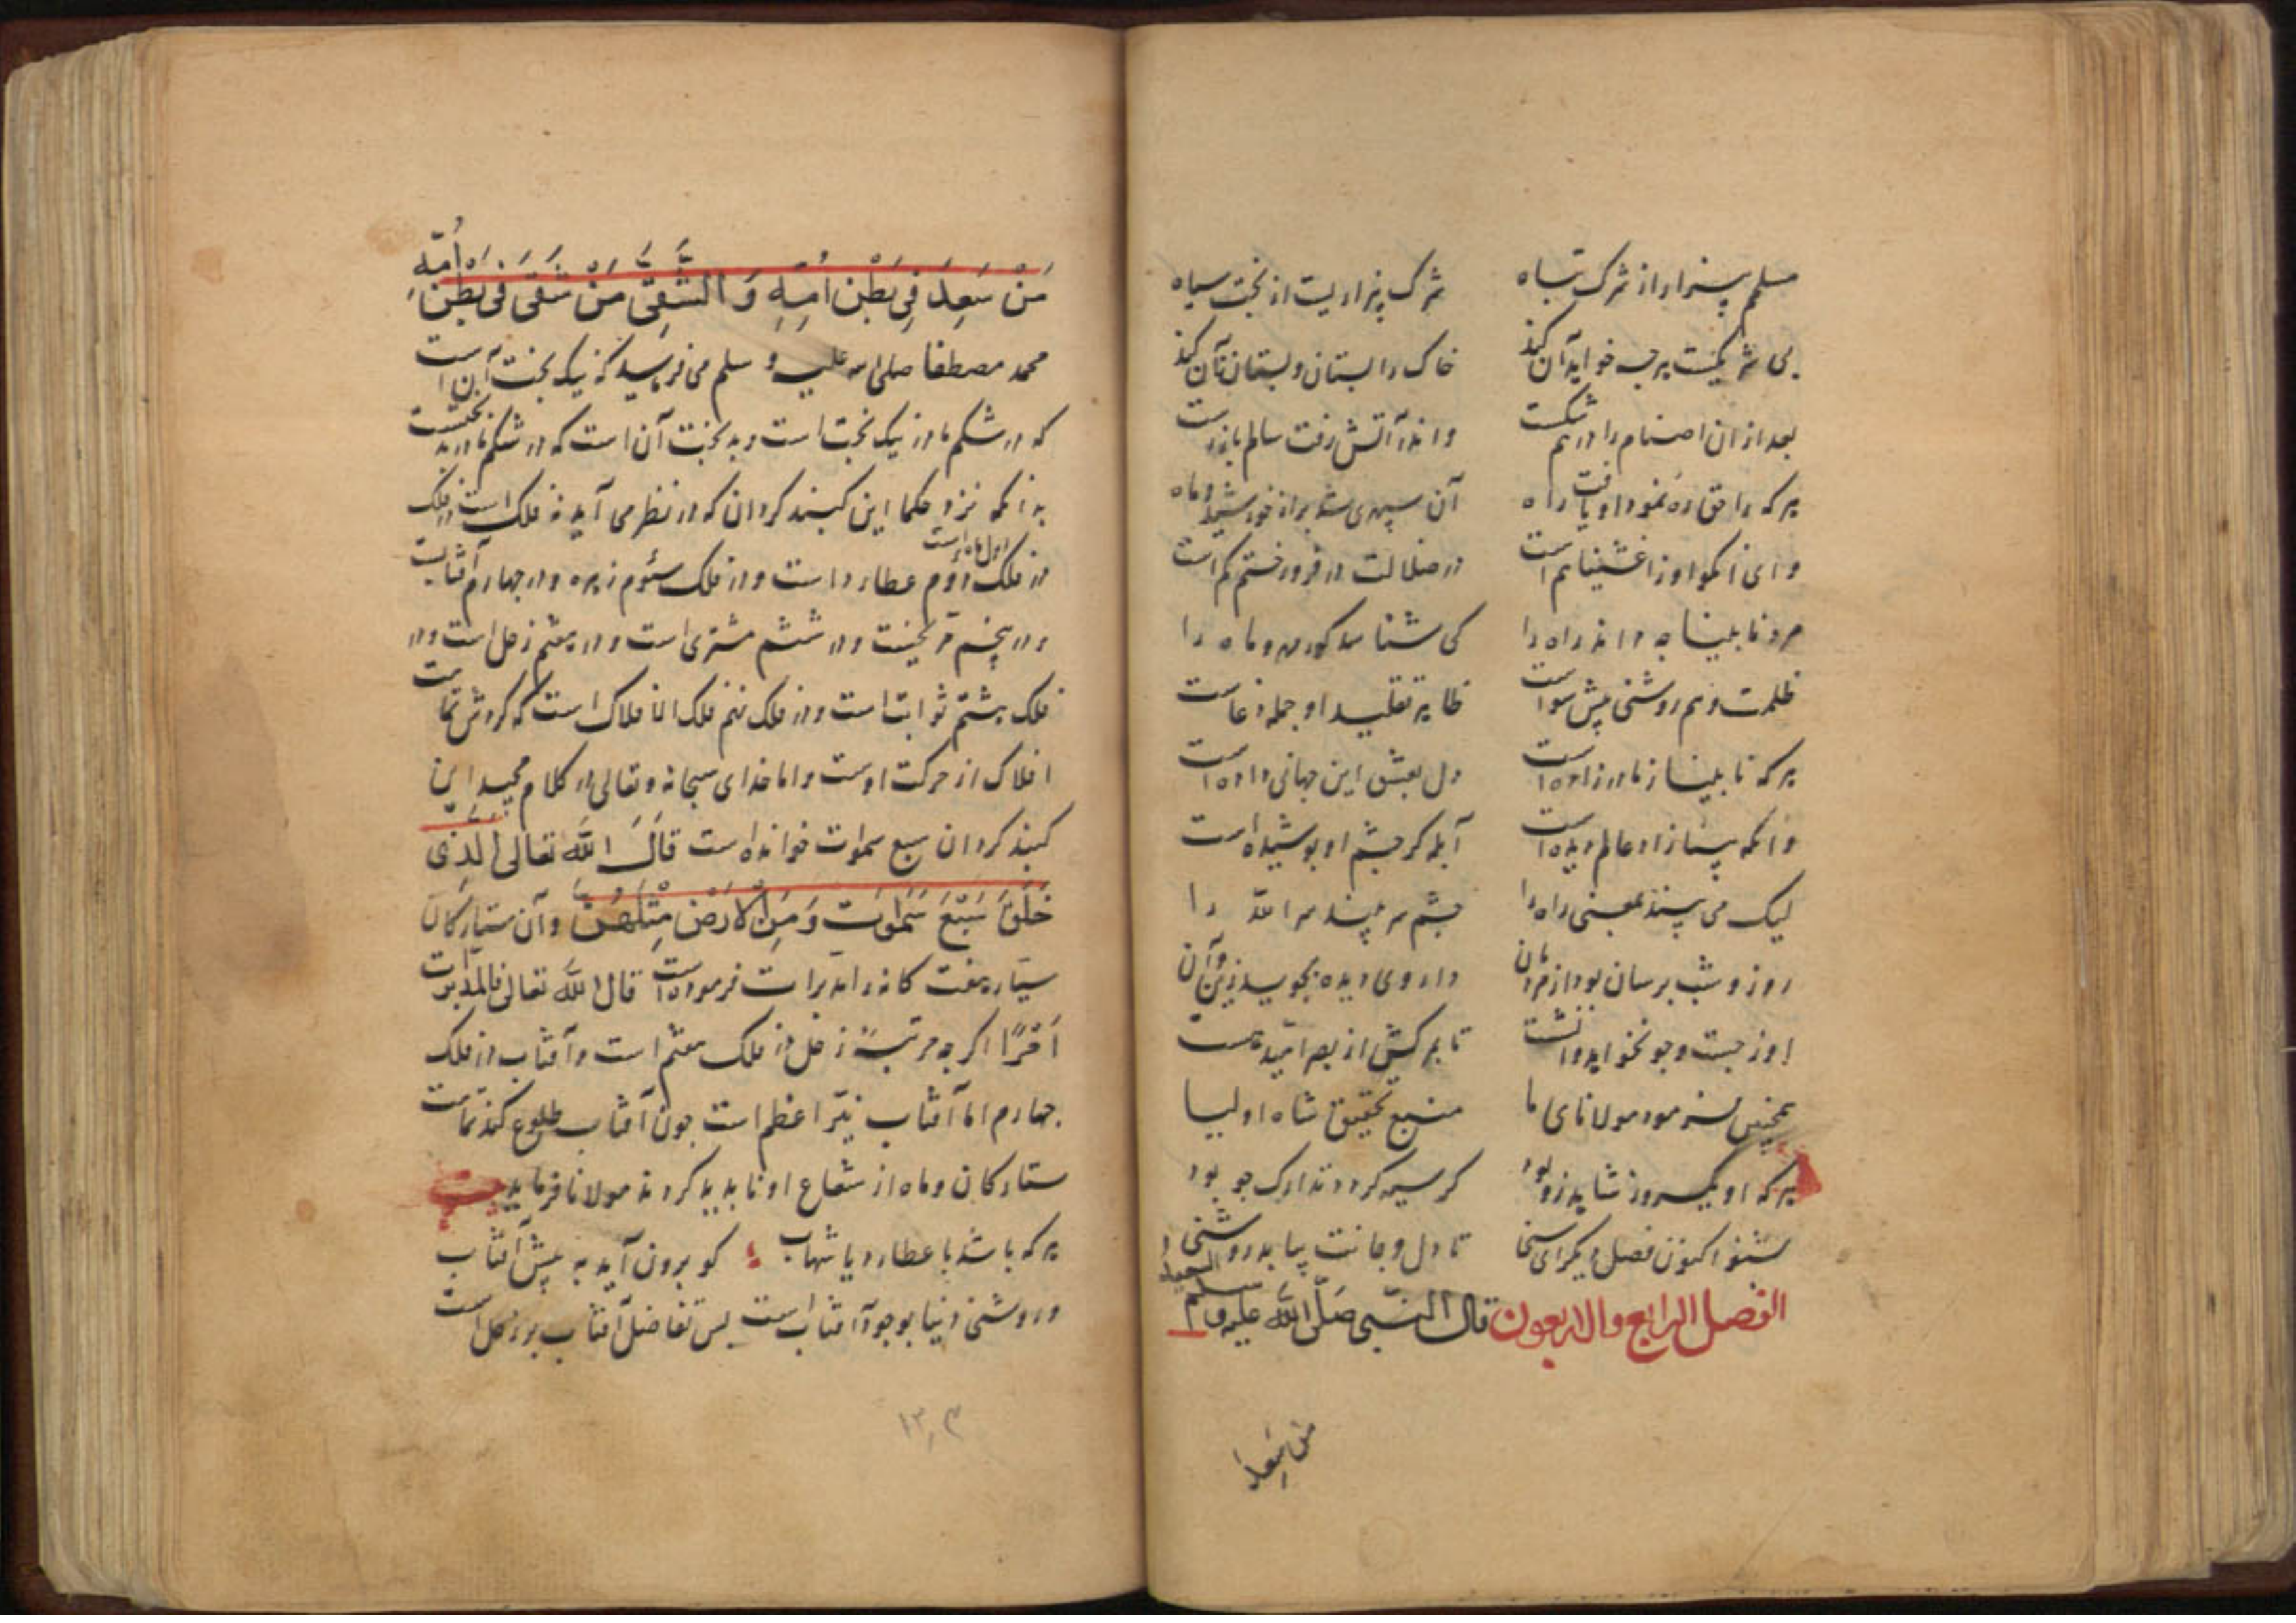 مسلم بیزار از شرک تباه شرک بیزاریست از بخت سیاه
بی شریکست هر چه خواهد آن کند خاک را بستان و بستان آن کند
بعد از آن اصنام را درهم شکست و اندر آتش رفت سالم باز رست
هر که را حق ره نمود او یافت راه آن سپهری شد بر از خورشید و ماه
در ضلالت در فرو رفتم کم است
مرد نابینا چه داند راه را کی شناسد کور مهر و ماه را
ظلمت و هم روشنی پیشش سواست ظاهر تقلید او جمله دغاست
هر که نابینا ز مادر زاده است دل بعشق این جهانی داده است
وانکه بینا زاد عالم دیده است آبله گر چشم او پوشیده است
لیک می بیند بمعنی راه را چشم سر بیند سر الله را
روز و شب پرسان بود از مردمان داروی دیده بجوید زین و آن
او ز جست و جو نخواهد وانشست تا بمرکش از بصر امید هست
همچنین فرمود مولانای ما منبع تحقیق شاه اولیا
هر که او یکروز شاید زو بود گر سیه گردد تدارک جو بود
بشنو اکنون فصل دیگر ای سخا تا دل و جانت بیابد روشنی
الفصل الرابع والاربعون قال النبی صلی الله علیه وسلم السعید
من سعد
مَنْ سَعِدَ فِی بَطْنِ اُمِّهِ وَ الشَّقِیُّ مَنْ شَقَی فِی بَطْنِ اُمِّهِ
محمد مصطفا صلی الله علیه و سلم می فرماید که نیک بخت آن است
که در شکم مادر نیک بخت است و بد بخت آن است که در شکم مادر بد بختست
بدانکه نزد حکما این کنبد کردان که در نظر می آید نه فلک است در فلک
اول ماه است
در فلک دوم عطارد است و در فلک سئوم زهره و در چهارم آفتابست
و در پنجم مریخست و در ششم مشتری است و در هفتم زحل است و در
فلک هشتم ثوابت است و در فلک نهم فلک الافلاک است که کردش تمامت
افلاک از حرکت اوست و اما خدای سبحانه و تعالی در کلام مجید این
کنبد کردان سبع سموات خوانده است قَالَ اللّٰهُ تعالی الَّذِی
خَلَقَ سَبْعَ سَمٰوٰتٍ وَ مِنَ الْاَرْضِ مِثْلَهُنَّ و آن ستارکان
سیاره هفت کانه را مدبرات فرموده است قال الله تعالی فالمدبرات
اَمْرًا اکر چه مرتبهٔ زحل در فلک هفتم است و آفتاب در فلک
چهارم اما آفتاب نیّر اعظم است چون آفتاب طلوع کند تمامت
ستارکان و ماه از شعاع او نابدید کردند مولانا فرماید بیت
هر که باشد با عطارد یا شهاب کو برون آید به پیش آفتاب
و روشنی دنیا بوجود آفتاب است پس تفاضل آفتاب بر زحل است